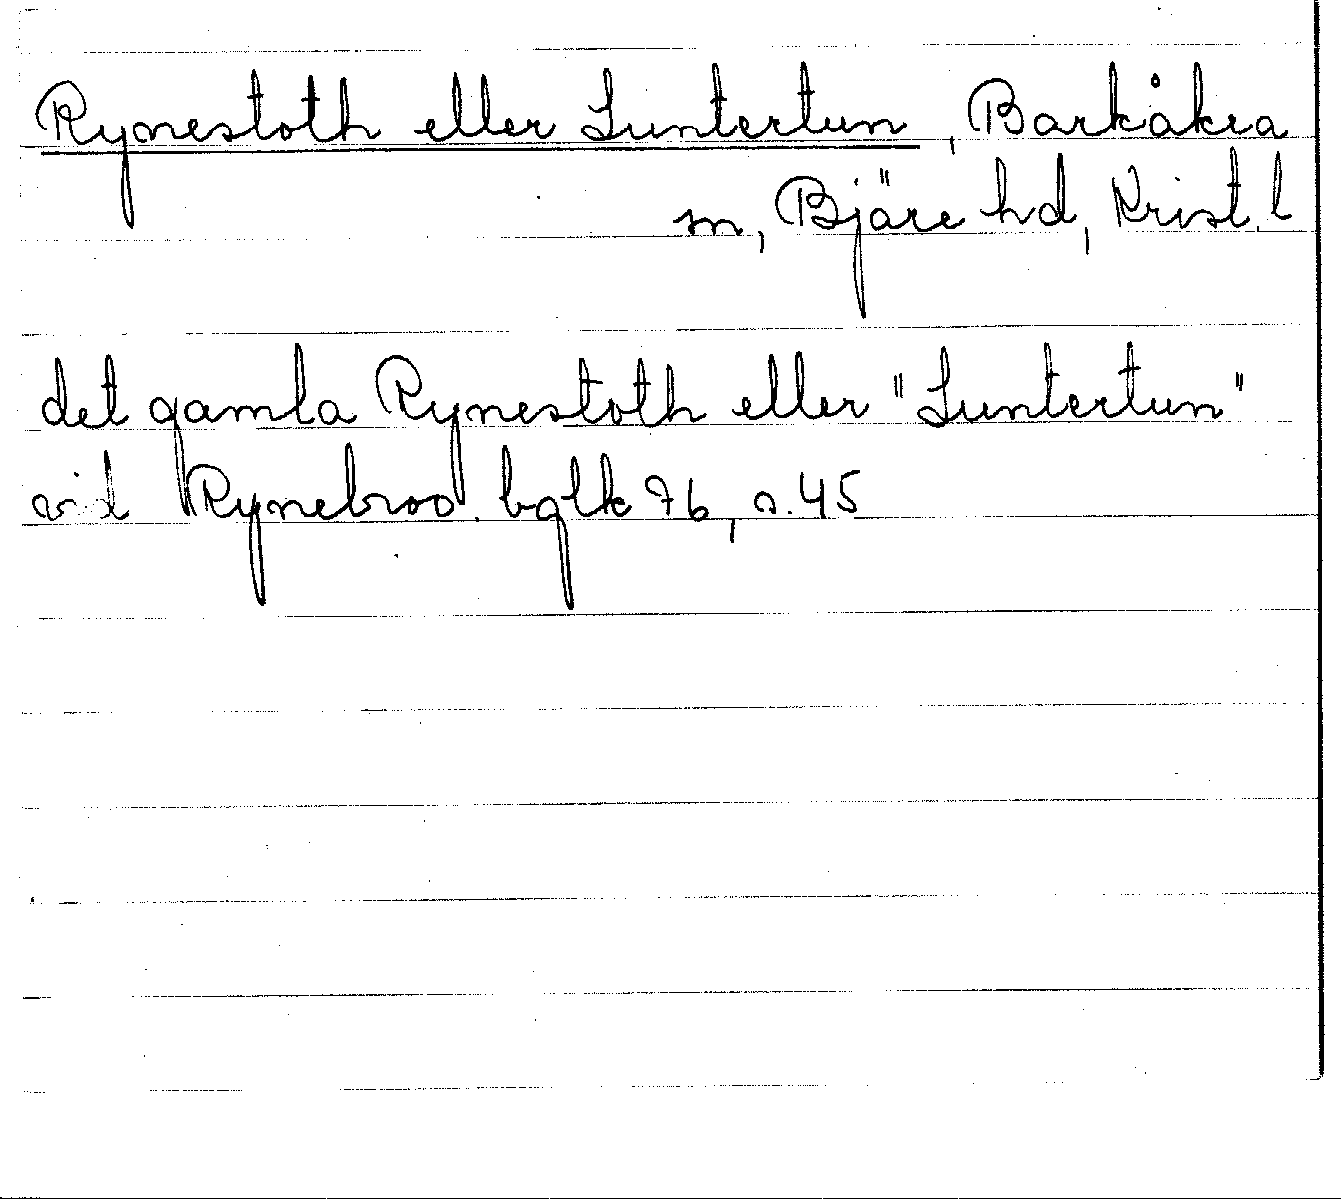 Rynestoth eller Luntertun, Barkåkra
sn, Bjäre hd, Krist. l
det gamla Rynestoth eller "Luntertun"
vid Rynebroo. bglk 76, s. 45